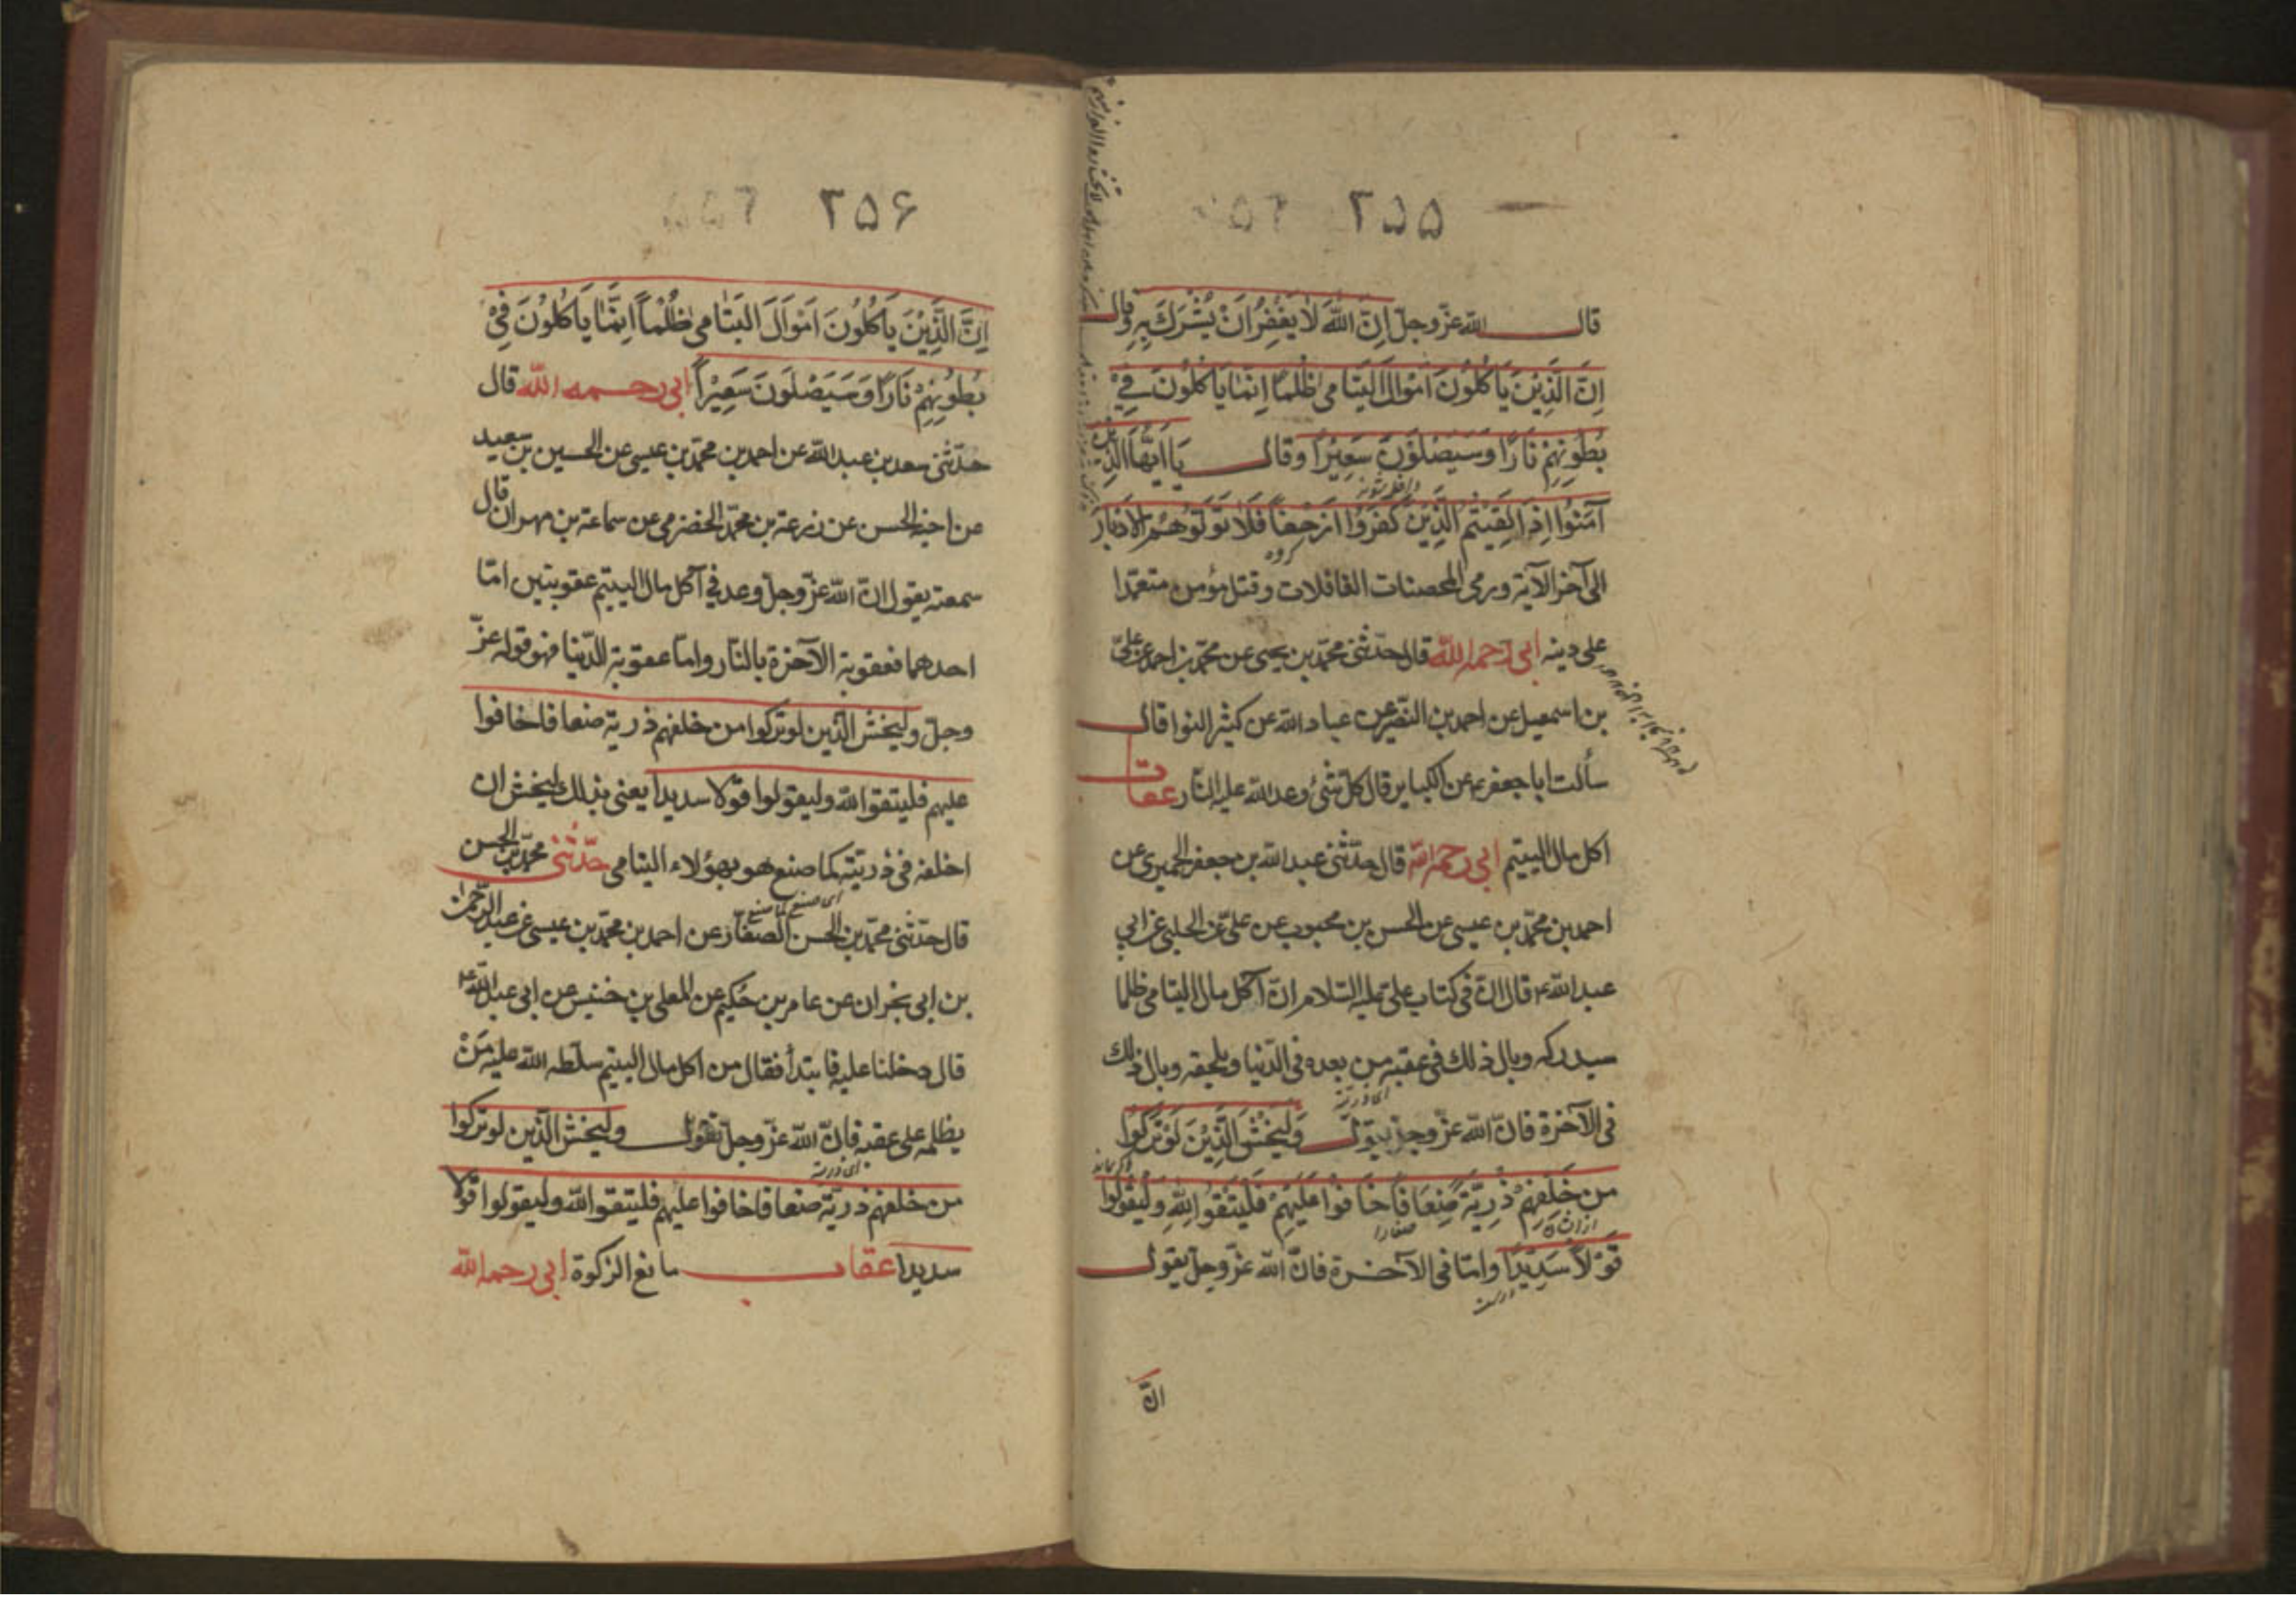 ۲۵۵
قال الله عزّ وجلّ اِنَّ اللهَ لاٰ يَغْفِرُ اَنْ يُشْرَكَ بِهِ وقال
اِنَّ الَّذِيْنَ يَاْكُلُوْنَ اَمْوٰالَ الْيَتٰامىٰ ظُلْماً اِنَّمٰا يَاْكُلُوْنَ فِيْ
بُطُوْنِهِمْ نَارًا وَسَيَصْلَوْنَ سَعِيْرًا وقال يَا اَيُّهَا الَّذِيْنَ
آمَنُوْا اِذٰا لَقِيْتُمُ الَّذِيْنَ كَفَرُوْا زَحْفاً فَلاٰ تُوَلُّوْهُمُ الْاَدْبٰارَ
گروه
الى آخر الآية ورمى المحصنات الغافلات وقتل مؤمن متعمّدا
على دينه ابى رحمه الله قال حدّثنى محمّد بن يحيى عن محمّد بن احمد عن علىّ
بن اسمعيل عن احمد بن النضر عن عباد الله عن كثير النوا قال
سألت ابا جعفر ع عن الكباير قال كلّ شئ وعد الله عليه النّار عقاب
اكل مال اليتيم ابى رحمه الله قال حدّثنى عبد الله بن جعفر الحميرى عن
احمد بن محمّد بن عيسى عن الحسن بن محبوب عن علىّ عن الحلبى عن ابي
عبد الله ع قال انّ فى كتاب على عليه السّلام انّ آكل مال اليتامى ظلما
سيدركه وبال ذلك فى عقبه من بعده فى الدّنيا ويلحقه وبال ذلك
اى ذريته
فى الآخرة فانّ الله عزّ وجلّ يقول وَلْيَخْشَ الَّذِيْنَ لَوْ تَرَكُوْا
من خَلْفِهِمْ ذُرِيَّةً ضِعَافًا خَافُوْا عَلَيْهِمْ فَلْيَتَّقُوا اللهَ وَلْيَقُوْلُوا
صغارا
قَوْلاً سَدِيْدًا وامّا فى الآخرة فانّ الله عزّ وجلّ يقول
انّ
۲۵۶
اِنَّ الَّذِيْنَ يَاْكُلُوْنَ اَمْوَالَ الْيَتَامىٰ ظُلْماً اِنَّمَا يَاْكُلُوْنَ فِيْ
بُطُوْنِهِمْ نَارًا وَسَيَصْلَوْنَ سَعِيْرًا ابى رحمه الله قال
حدّثنى سعد بن عبد الله عن احمد بن محمّد بن عيسى عن الحسين بن سعيد
عن اخيه الحسن عن زرعة بن محمّد الحضرمى عن سماعة بن مهران قال
سمعته يقول انّ الله عزّ وجلّ وعد فى آكل مال اليتيم عقوبتين امّا
احدهما فعقوبة الآخرة بالنّار وامّا عقوبة الدّنيا فهو قوله عزّ
وجلّ وليخش الّذين لو تركوا من خلفهم ذريّة ضعافا خافوا
عليهم فليتقوا الله وليقولوا قولا سديدا يعنى بذلك ليخش ان
اخلفه فى ذريّته كما صنع هو بهؤلاء اليتامى حدّثنى محمّد بن الحسن
اى صنع كما صنع
قال حدّثنى محمّد بن الحسن الصفّار عن احمد بن محمّد بن عيسى عن عبد الرّحمن
بن ابى نجران عن عامر بن حُكيم عن المعلى بن خنيس عن ابى عبد الله ع
قال دخلنا عليه فابتدأ فقال من اكل مال اليتيم سلّطه الله عليه مَنْ
يظلمه على عقبه فانّ الله عزّ وجلّ يقول وليخش الّذين لو تركوا
اى ذريته
من خلفهم ذريّة ضعافا خافوا عليهم فليتقوا الله وليقولوا قولا
سديدا عقاب مانع الزكوة ابى رحمه الله